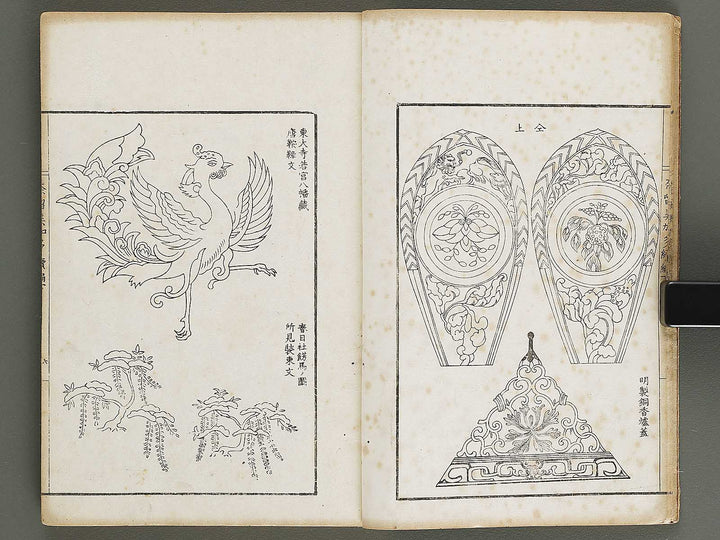 仝上
明製銅香爐蓋
東大寺若宮八幡藏
唐鞍鞖文
春日社餝馬ノ圖
所見裝束文